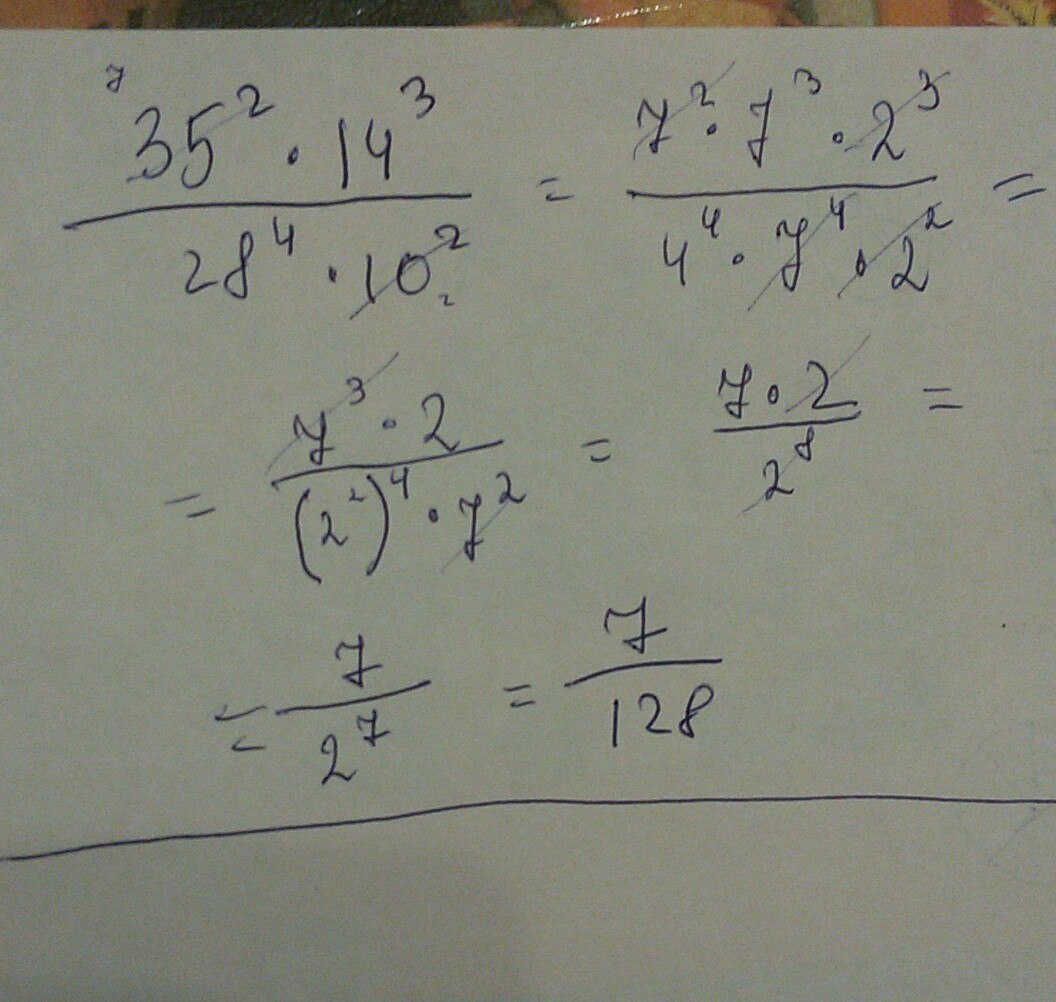 35² · 14³ / 28⁴ · 10² = 7² · 7³ · 2³ / 4⁴ · 7⁴ · 2² =
= 7³ · 2 / (2²)⁴ · 7² = 7 · 2 / 2⁸ =
= 7 / 2⁷ = 7 / 128